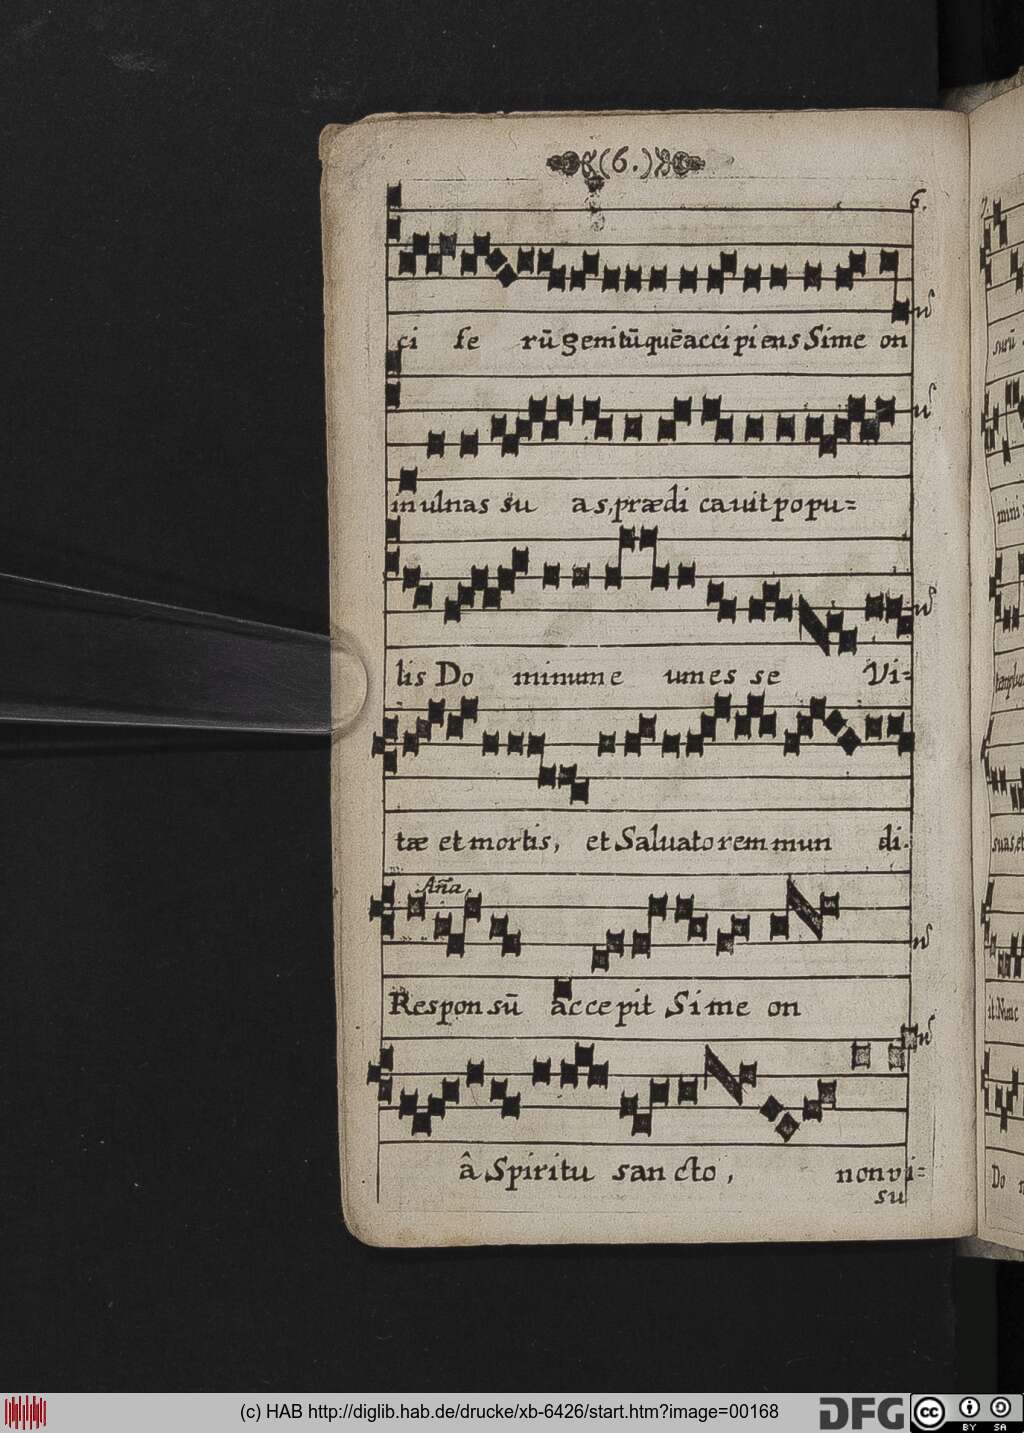 (6.)
6.
ci fe rū genitū quē accipiens Sime on
in ulnas su as, prædi cavit popu=
lis Do minum e um es se Vi=
tæ et mortis, et Salvatorem mun di.
Aña
Respon sū accepit Sime on
â Spiritu san cto, non vi=
su
(c) HAB http://diglib.hab.de/drucke/xb-6426/start.htm?image=00168
DFG
cc BY SA